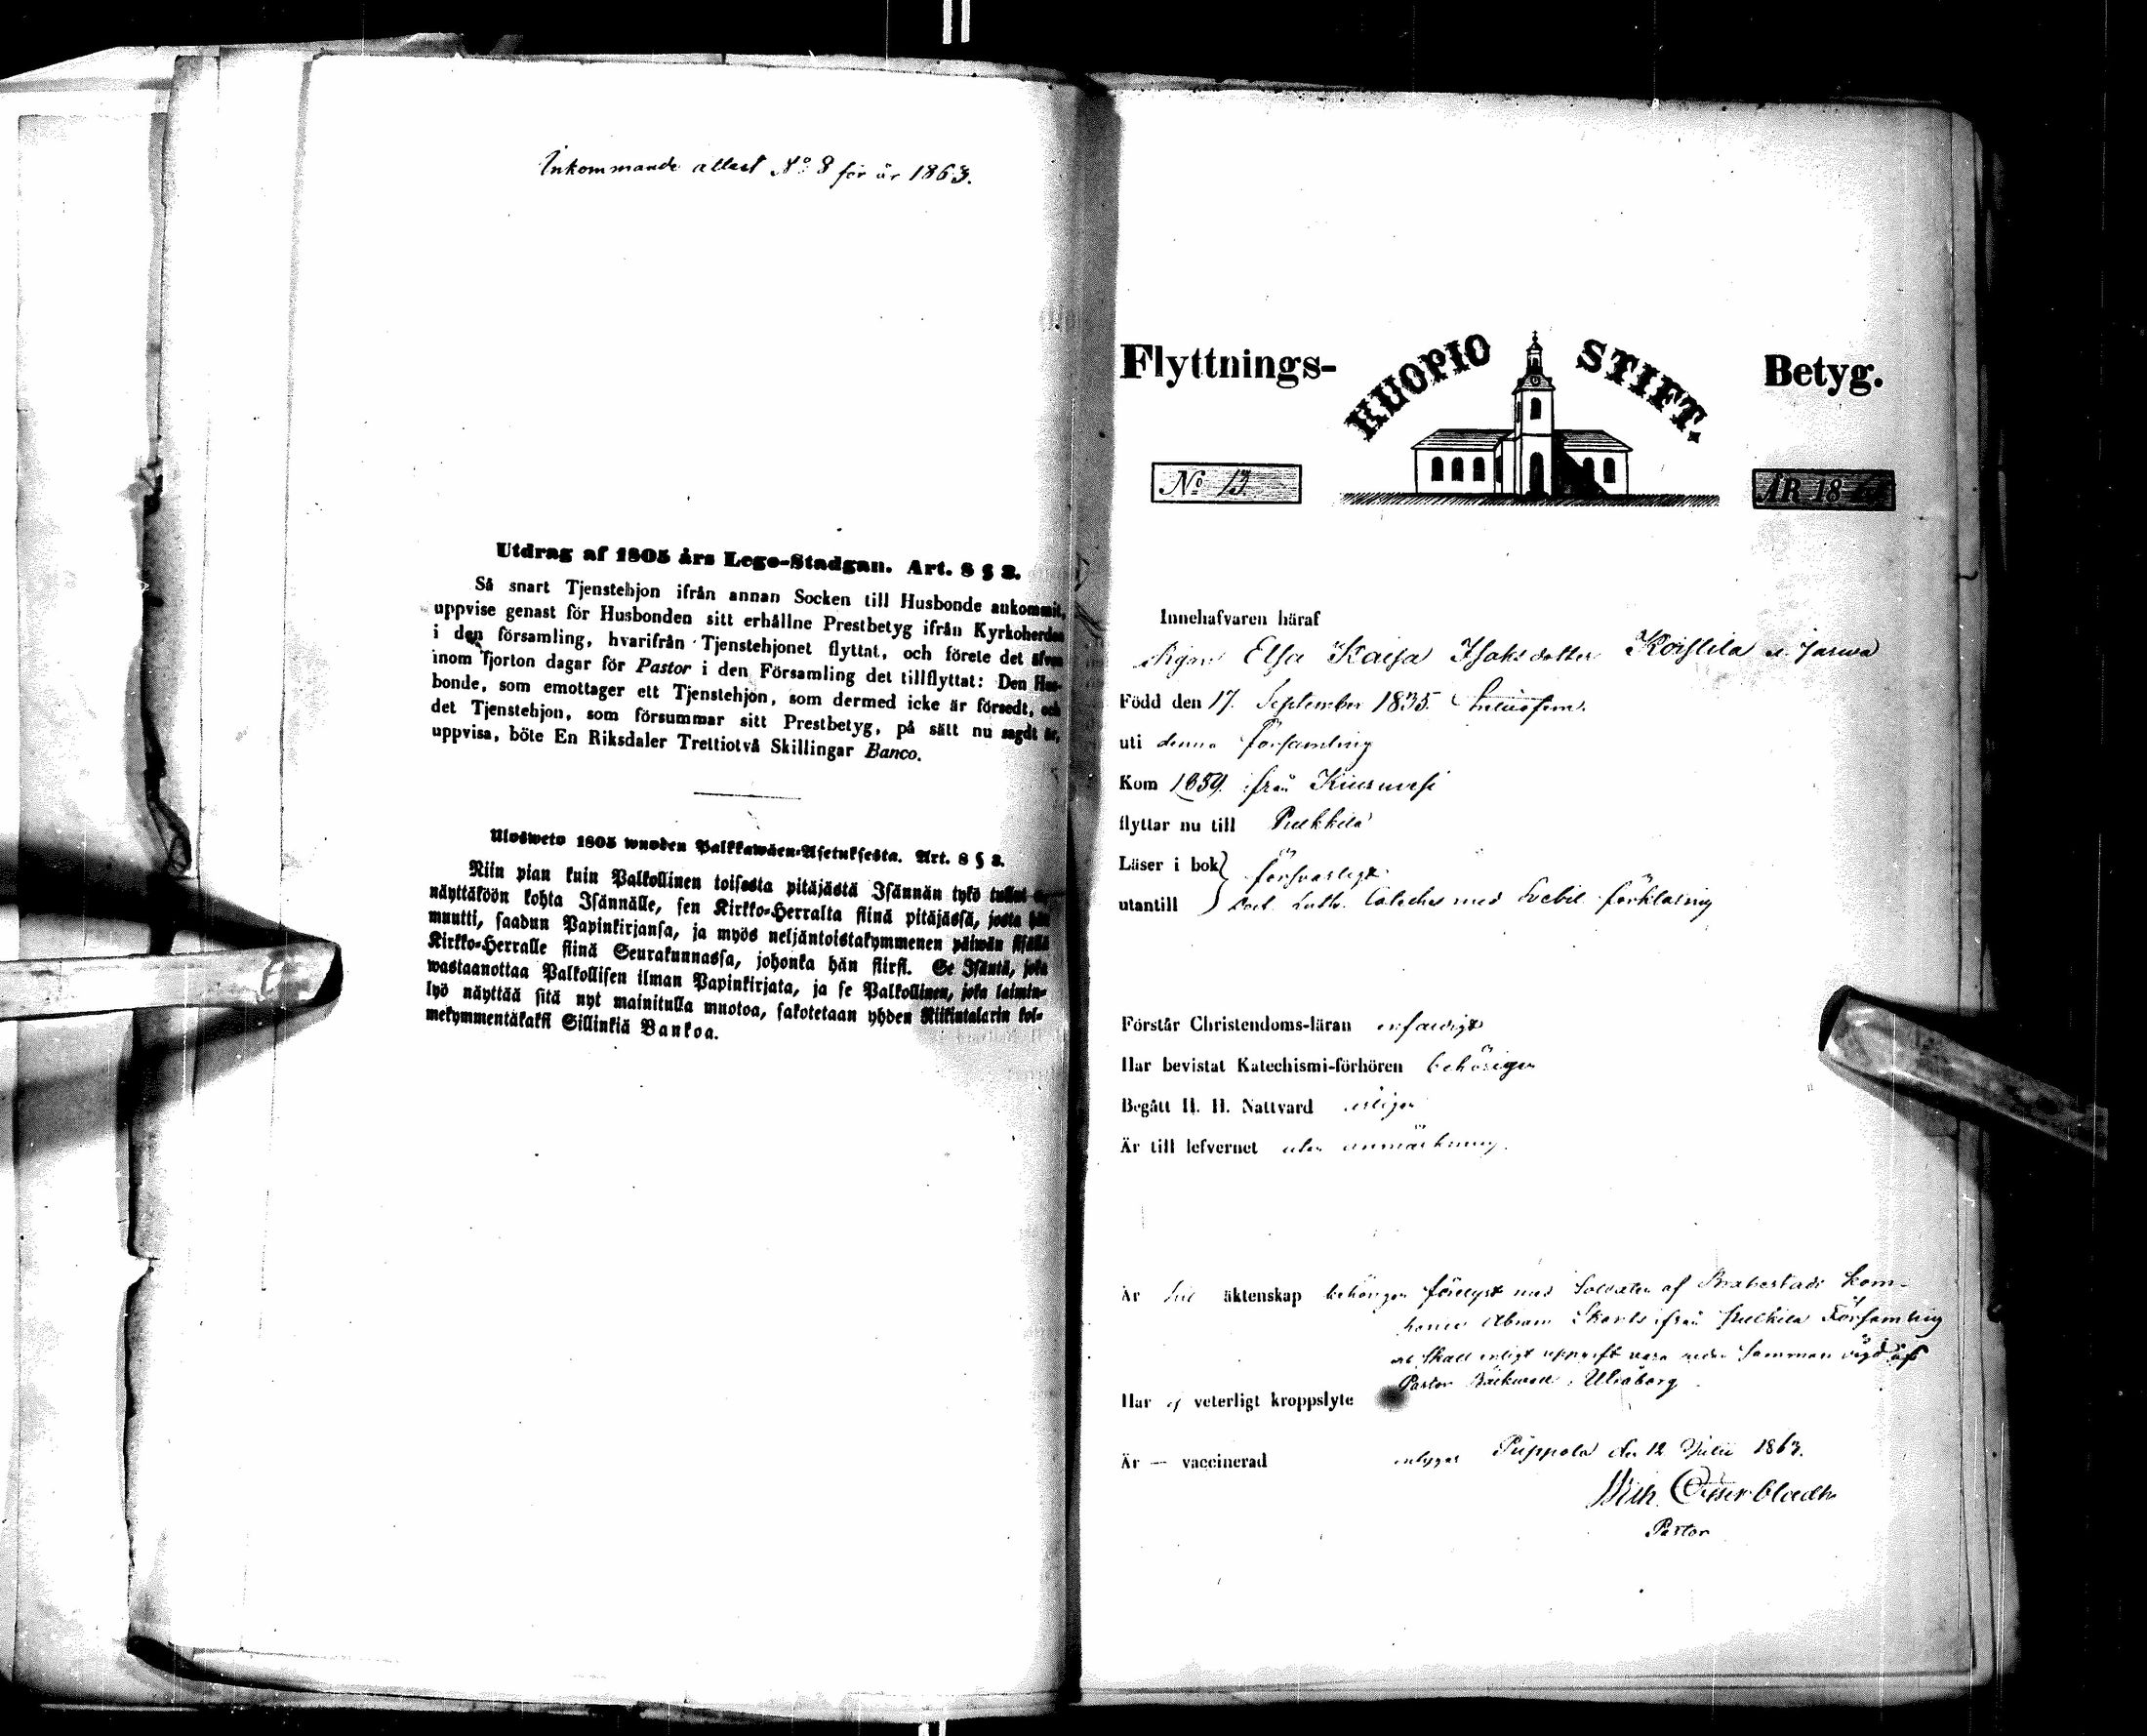 Inkommande attest No 8 för år 1863.
Utdrag af 1805 års Lego-Stadgan. Art. 8 § 2.
Så snart Tjenstehjon ifrån annan Socken till Husbonde ankommit,
uppvise genast för Husbonden sitt erhållne Prestbetyg ifrån Kyrkoherden
i den församling, hvarifrån Tjenstehjonet flyttat, och förete det äfven
inom fjorton dagar för Pastor i den Församling det tillflyttat: Den Hus-
bonde, som emottager ett Tjenstehjon, som dermed icke är försedt, och
det Tjenstehjon, som försummar sitt Prestbetyg, på sätt nu sagdt är,
uppvisa, böte En Riksdaler Trettiotvå Skillingar Banco.
Ulosweto 1805 wuoden Palkkawäen-Asetuksesta. Art. 8 § 2.
Niin pian kuin Palkollinen toisesta pitäjästä Isännän tykö tullut
näyttäköön kohta Isännälle, sen Kirkko-Herralta siinä pitäjässä, josta hän
muutti, saadun Papinkirjansa, ja myös neljäntoistakymmenen päiwän sisällä
Kirkko-Herralle siinä Seurakunnassa, johonka hän siirsi. Se Isäntä, joka
wastaanottaa Palkollisen ilman Papinkirjata, ja se Palkollinen, joka laimin-
lyö näyttää sitä nyt mainitulla muotoa, sakotetaan yhden Riikintalarin kol-
mekymmentäkaksi Sillinkiä Bankoa.
Flyttnings- KUOPIO STIFT. Betyg.
No 13. ÅR 18
Innehafvaren häraf
Elsa Kaisa Isaksdotter Koistila
Född den 17. September 1835.
uti denna församling
Kom 1859. från Kiuruvesi
flyttar nu till Pulkkila
Läser i bok försvarligt
utantill Doct. Luth. Cateches med Svebil. förklaring
Förstår Christendoms-läran enfaldigt
Har bevistat Katechismi-förhören behörigen
Begått H. H. Nattvard
Är till lefvernet utan anmärkning.
Är till äktenskap behörigen förelyst med Soldaten af Brahestads kom-
Abram ifrån Pulkkila Församling
skall enligt uppgift vara redan sammanvigd af
Pastor i Uleåborg.
Har ej veterligt kroppslyte
Är — vaccinerad intygar Piippola den 12 Julii 1863.
Wilh. Österbladh
Pastor